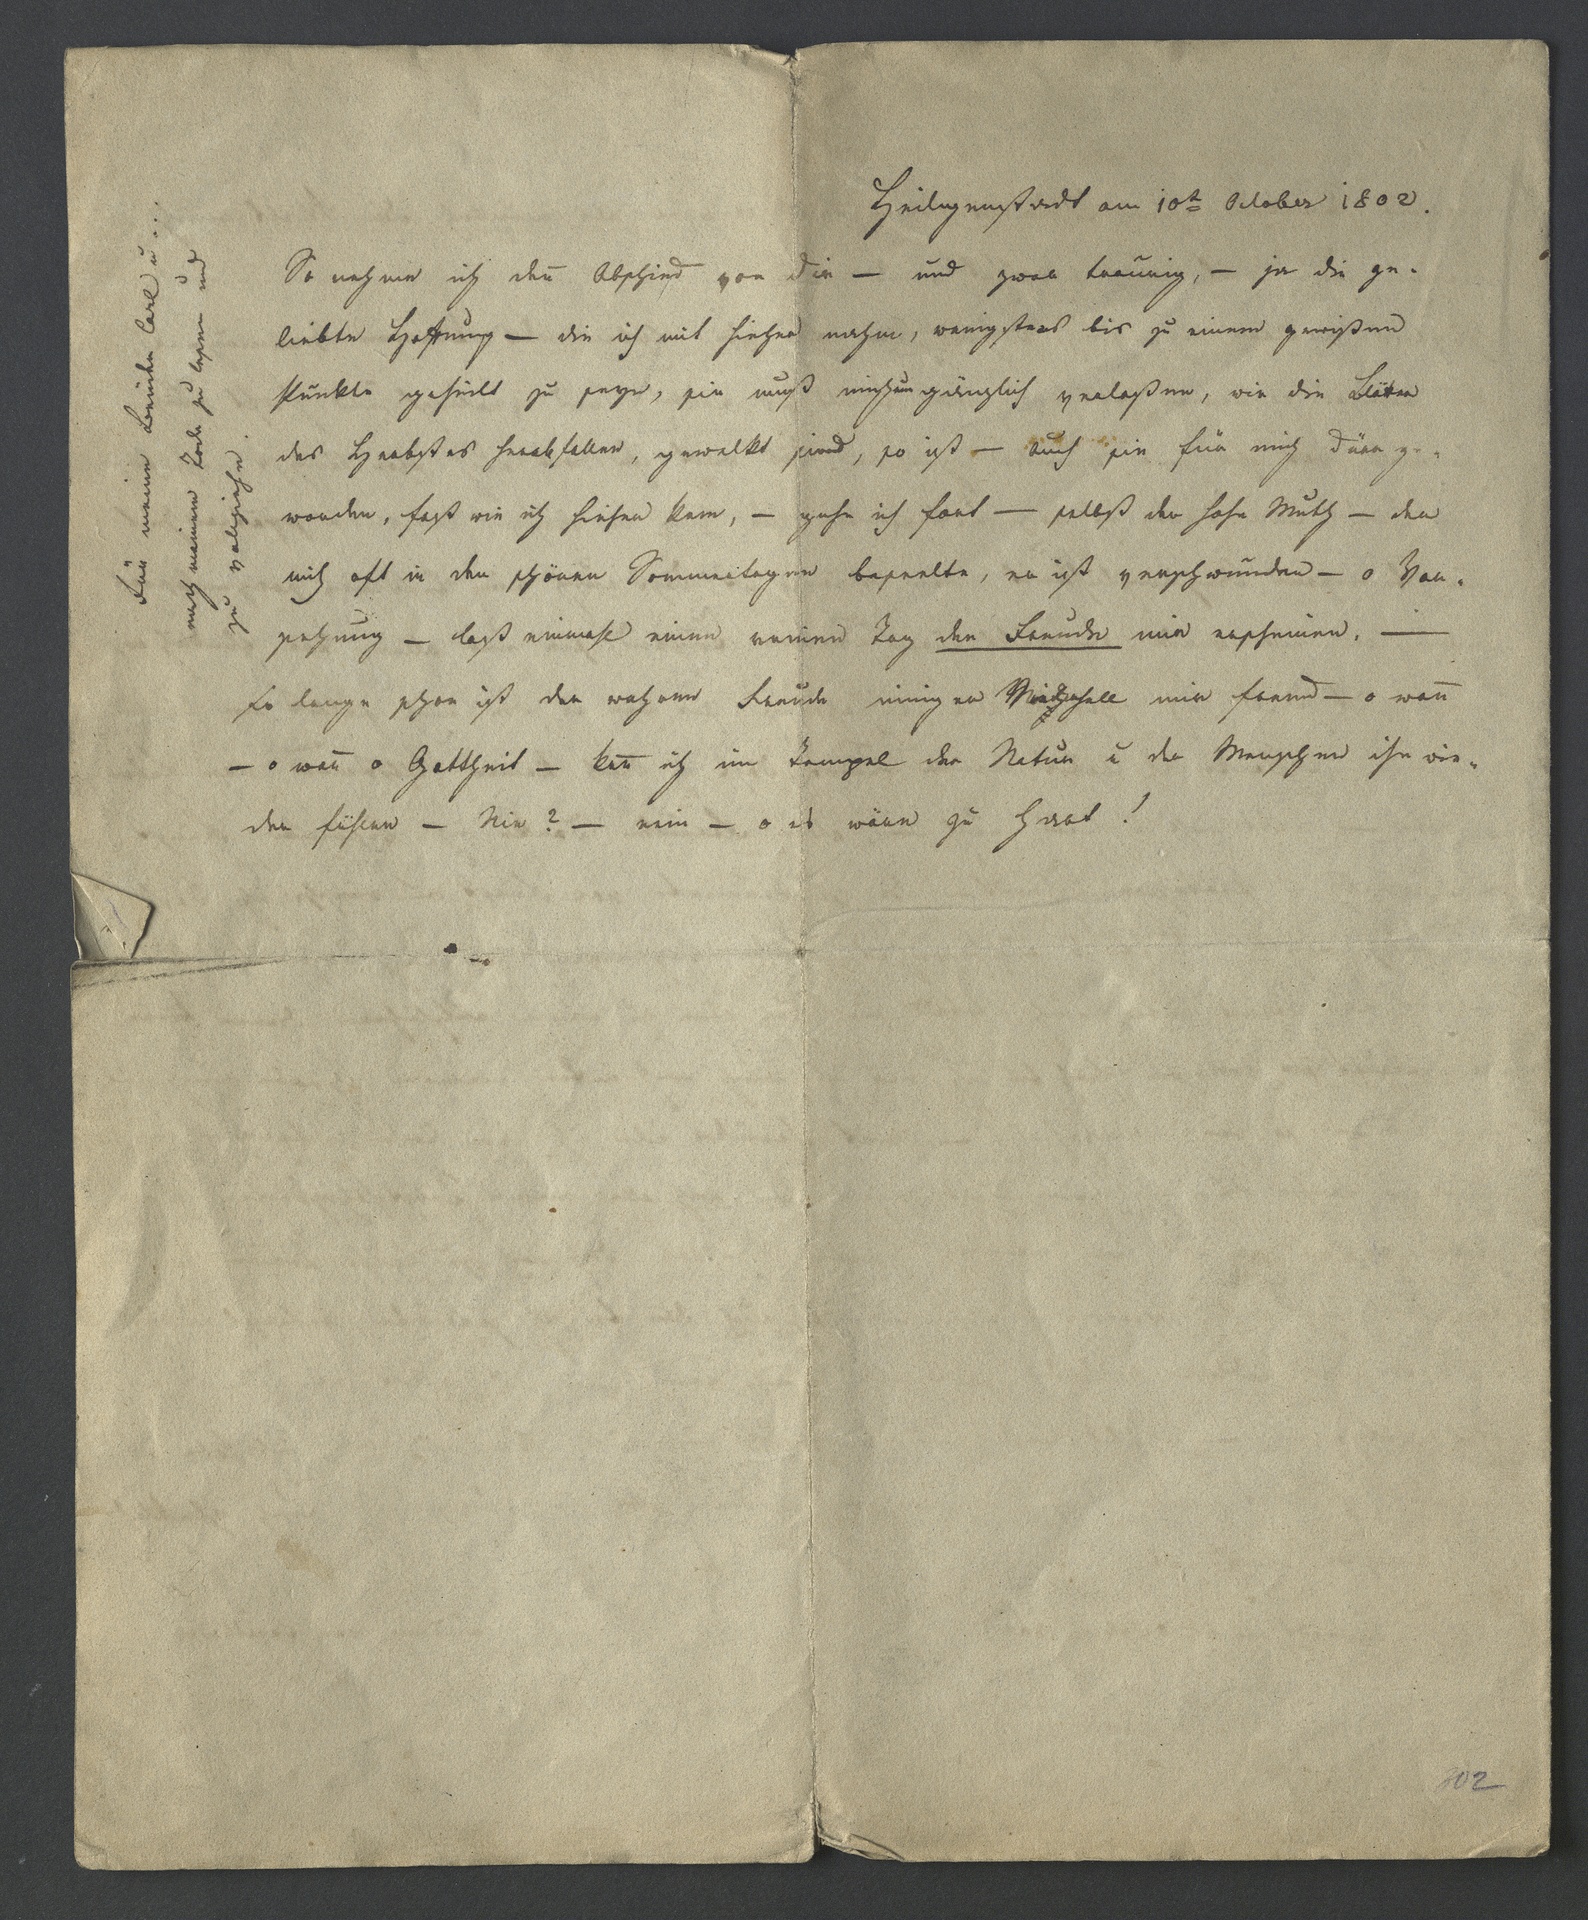 Heiligenstadt am 10<u>t</u> October 1802.
So nehme ich deñ Abschied von dir — und zwar traurig, — ja die ge-
liebte Hoffnung — die ich mit hieher nahm, wenigstens bis zu einem gewißen
Punkte geheilt zu seyn, sie muß mich nun gänzlich verlaßen, wie die Blätter
des Herbstes herabfallen, gewelkt sind, so ist — auch sie für mich dürr ge-
worden, fast wie ich hieher kam, — gehe ich fort — selbst der hohe Muth — der
mich oft in den schönen Sommertagen beseelte, er ist verschwunden — o Vor-
sehung — laß einmahl einen reinen Tag der Freude mir erscheinen, —
so lange schon ist der wahren Freude inniger Wiederhall mir fremd — o wañ
— o wañ o Gottheit — kañ ich im Tempel der Natur u der Menschen ihn wie-
der fühlen — Nie? — nein — o es wäre zu hart!
Für meine Brüder Carl u ...
nach meinem Tode zu lesen und
zu volziehn.
302